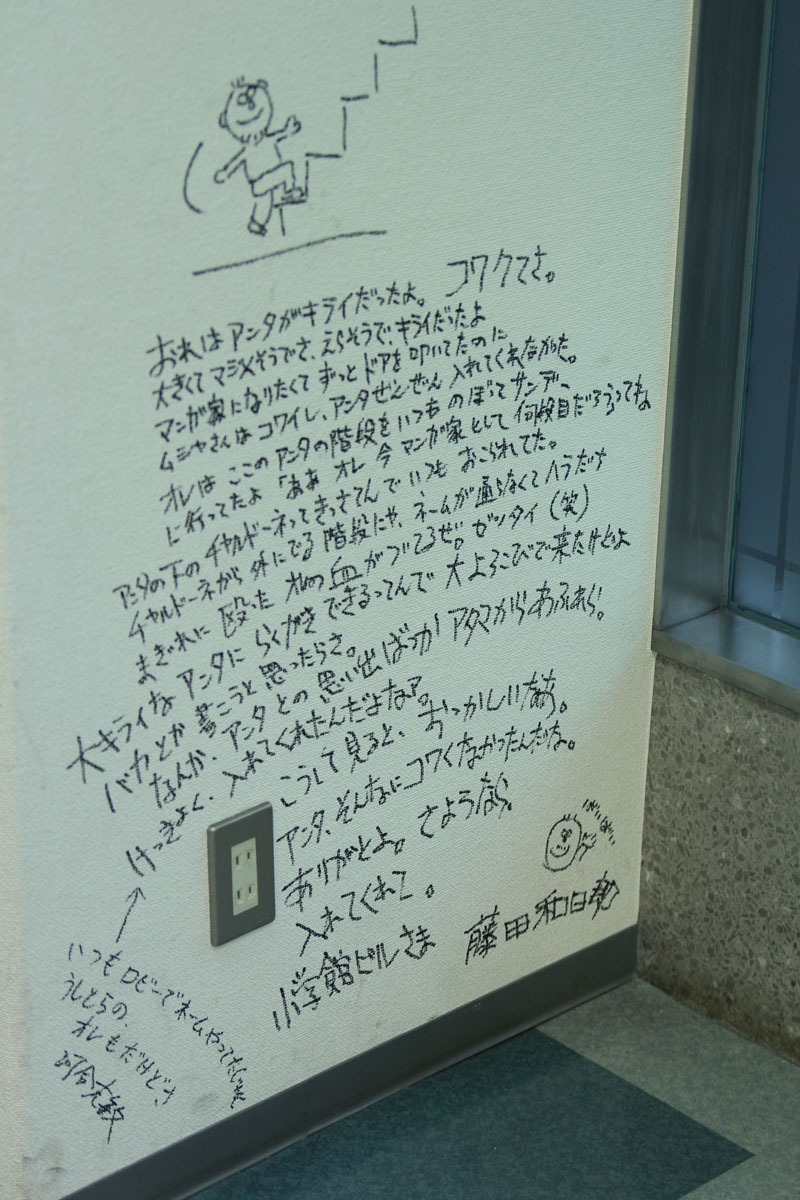 おれはアンタがキライだったよ。コワクてさ。
大きくてマジメそうでさ、えらそうで、キライだったよ
マンガ家になりたくてずっとドアを叩いてたのに
ムシャさんはコワイし、アンタぜんぜん入れてくれなかった。
オレは ここのアンタの階段をいつものぼってサンデー
に行ってたよ「ああ オレ 今 マンガ家として何段目だろうってね
アンタの下のチャルドーネってきっさてんでいつもおこられてた。
チャルドーネから外にでる階段にゃ、ネームが通らなくてハラだち
まぎれに殴ったオレの血がついてるぜ。ゼッタイ(笑)
大キライなアンタにらくがきできるってんで大よろこびで来たけどよ
バカとか書こうと思ったらさ。
なんか、アンタとの思い出ばっかアタマからあふれら。
けっきょく、入れてくれたんだよなァ。
こうして見ると、おっかしいなあ。
アンタ、そんなにコワくなかったんだな。
ありがとよ。さようなら。
入れてくれて。
小学館ビルさま
藤田和日郎
ばいばい
いつもロビーでネームやってたじゃん
うしとらの、
オレもだけどさ
河合克敏